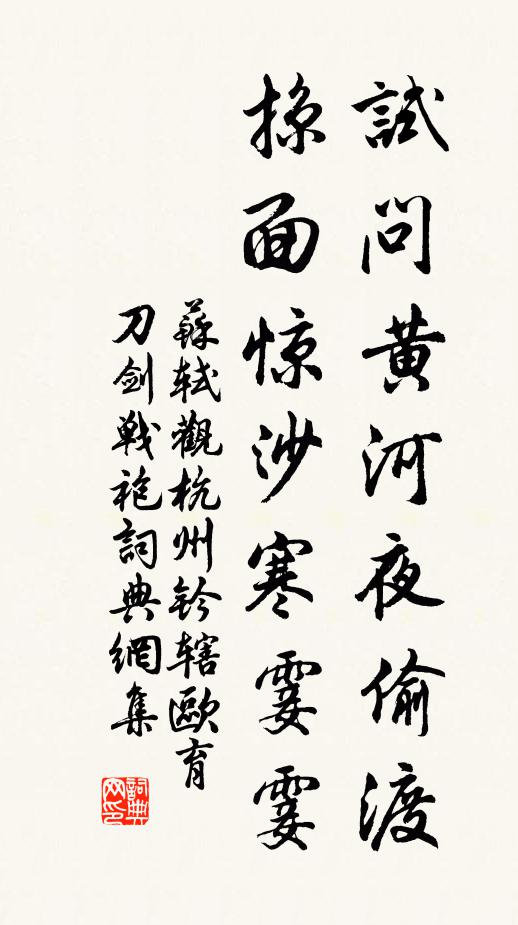 試問黄河夜偷渡
掠面惊沙寒霎霎
蘇軾觀杭州鈐轄歐育
刀劍戰袍詞典網集
詞典
网印